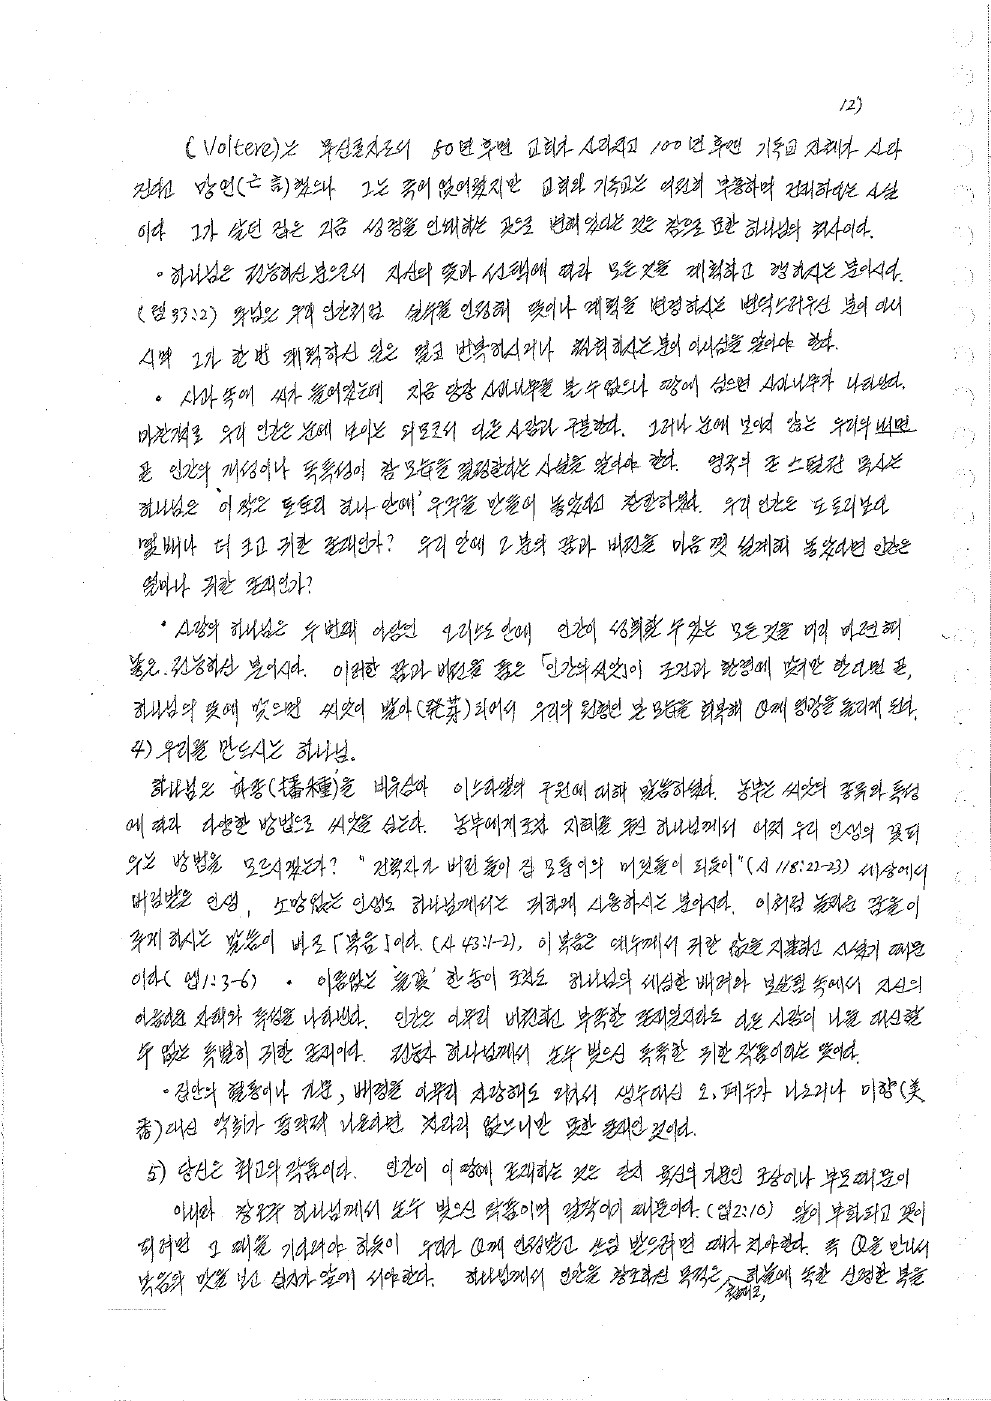 12)
(Voltere)는 무신론자로서 50년후면 교회가 사라지고 100년후면 기독교 자체가 사라
진다고 망언(亡言)했으나 그는 죽어 없어졌지만 교회와 기독교는 여전히 부흥하며 건재하다는 사실
이다 그가 살던 집은 지금 성경을 인쇄하는 곳으로 변해있다는 것은 참으로 묘한 하나님의 역사이다.
• 하나님은 전능하신 분으로서 자신의 뜻과 선택에 따라 모든것을 계획하고 행하시는 분이시다.
(렘33:2) 하나님은 우리 인간처럼 실수를 인정해 뜻이나 계획을 변경하시는 변덕스러우신 분이 아니
시며 그가 한번 계획하신 일은 결코 번복하시거나 철회하시는분이 아니심을 알아야 한다.
• 사과 속에 씨가 들어있는데 지금 당장 사과나무를 볼 수 없으나 땅에 심으면 사과나무가 나타난다.
마찬가지로 우리 인간은 눈에 보이는 외모로서 다른 사람과 구분한다. 그러나 눈에 보이지 않는 우리의 내면
곧 인간의 개성이나 독특성이 참 모습을 결정한다는 사실을 알아야 한다. 영국의 존 스펄젼 목사는
하나님은 '이 작은 도토리 하나 안에' 우주를 만들어 놓았다고 찬탄하였다. 우리 인간은 도토리보다
몇배나 더 크고 귀한 존재인가? 우리 안에 그분의 꿈과 비전을 마음껏 설계해 놓았다면 인간은
얼마나 귀한 존재인가?
• 사랑의 하나님은 두번째 아담인 그리스도 안에 인간이 성취할 수 있는 모든 것을 미리 마련해
놓은 전능하신 분이시다. 이러한 꿈과 비전을 품은 「인간의 씨앗」이 조건과 환경에 맞기만 한다면 곧,
하나님의 뜻에 맞으면 씨앗이 발아(發芽)되어서 우리의 원형인 본 모습을 회복해 O께 영광을 돌리게 된다.
4) 우리를 만드시는 하나님.
하나님은 파종(播種)을 비유삼아 이스라엘의 구원에 대해 말씀하셨다. 농부는 씨앗의 종류와 특성
에 따라 다양한 방법으로 씨앗을 심는다. 농부에게조차 지혜를 주신 하나님께서 어찌 우리 인생의 꽃피
우는 방법을 모르시겠는가? "건축자가 버린 돌이 집 모퉁이의 머릿돌이 되듯이"(시 118:22-23) 세상에서
버림받은 인생, 소망없는 인생도 하나님께서는 귀하게 사용하시는 분이시다. 이처럼 놀라운 꿈을 이
루게 하시는 말씀이 바로 「복음」이다. (사 43:1-2), 이 복음은 예수께서 귀한 값을 지불하고 사셨기 때문
이다( 엡1:3-6) • 이름없는 '들꽃' 한송이 조차도 하나님의 세심한 배려와 보살핌 속에서 자신의
아름다운 자태와 특성을 나타낸다. 인간은 아무리 비천하고 부족한 존재일지라도 다른 사람이 나를 대신할
수 없는 특별히 귀한 존재이다. 전능자 하나님께서 손수 빚으신 독특한 귀한 작품이라는 뜻이다.
• 집안의 혈통이나 가문, 배경을 아무리 자랑해도 거기서 생수대신 오,폐수가 나오거나 미향(美
香)대신 악취가 풍겨져 나온다면 차라리 없느니만 못한 존재인 것이다.
5) 당신은 최고의 작품이다. 인간이 이 땅에 존재하는 것은 단지 육신의 가문인 조상이나 부모 때문이
아니라 창조주 하나님께서 손수 빚으신 작품이며 걸작이기 때문이다. (엡2:10) 알이 부화되고 꽃이
피려면 그 때를 기다려야 하듯이 우리가 O께 인정받고 쓰임 받으려면 때가 차야한다. 즉 O을 만나서
복음의 맛을 보고 십자가 앞에 서야한다. 하나님께서 인간을 창조하신 목적은 하늘에 속한 신령한 복을